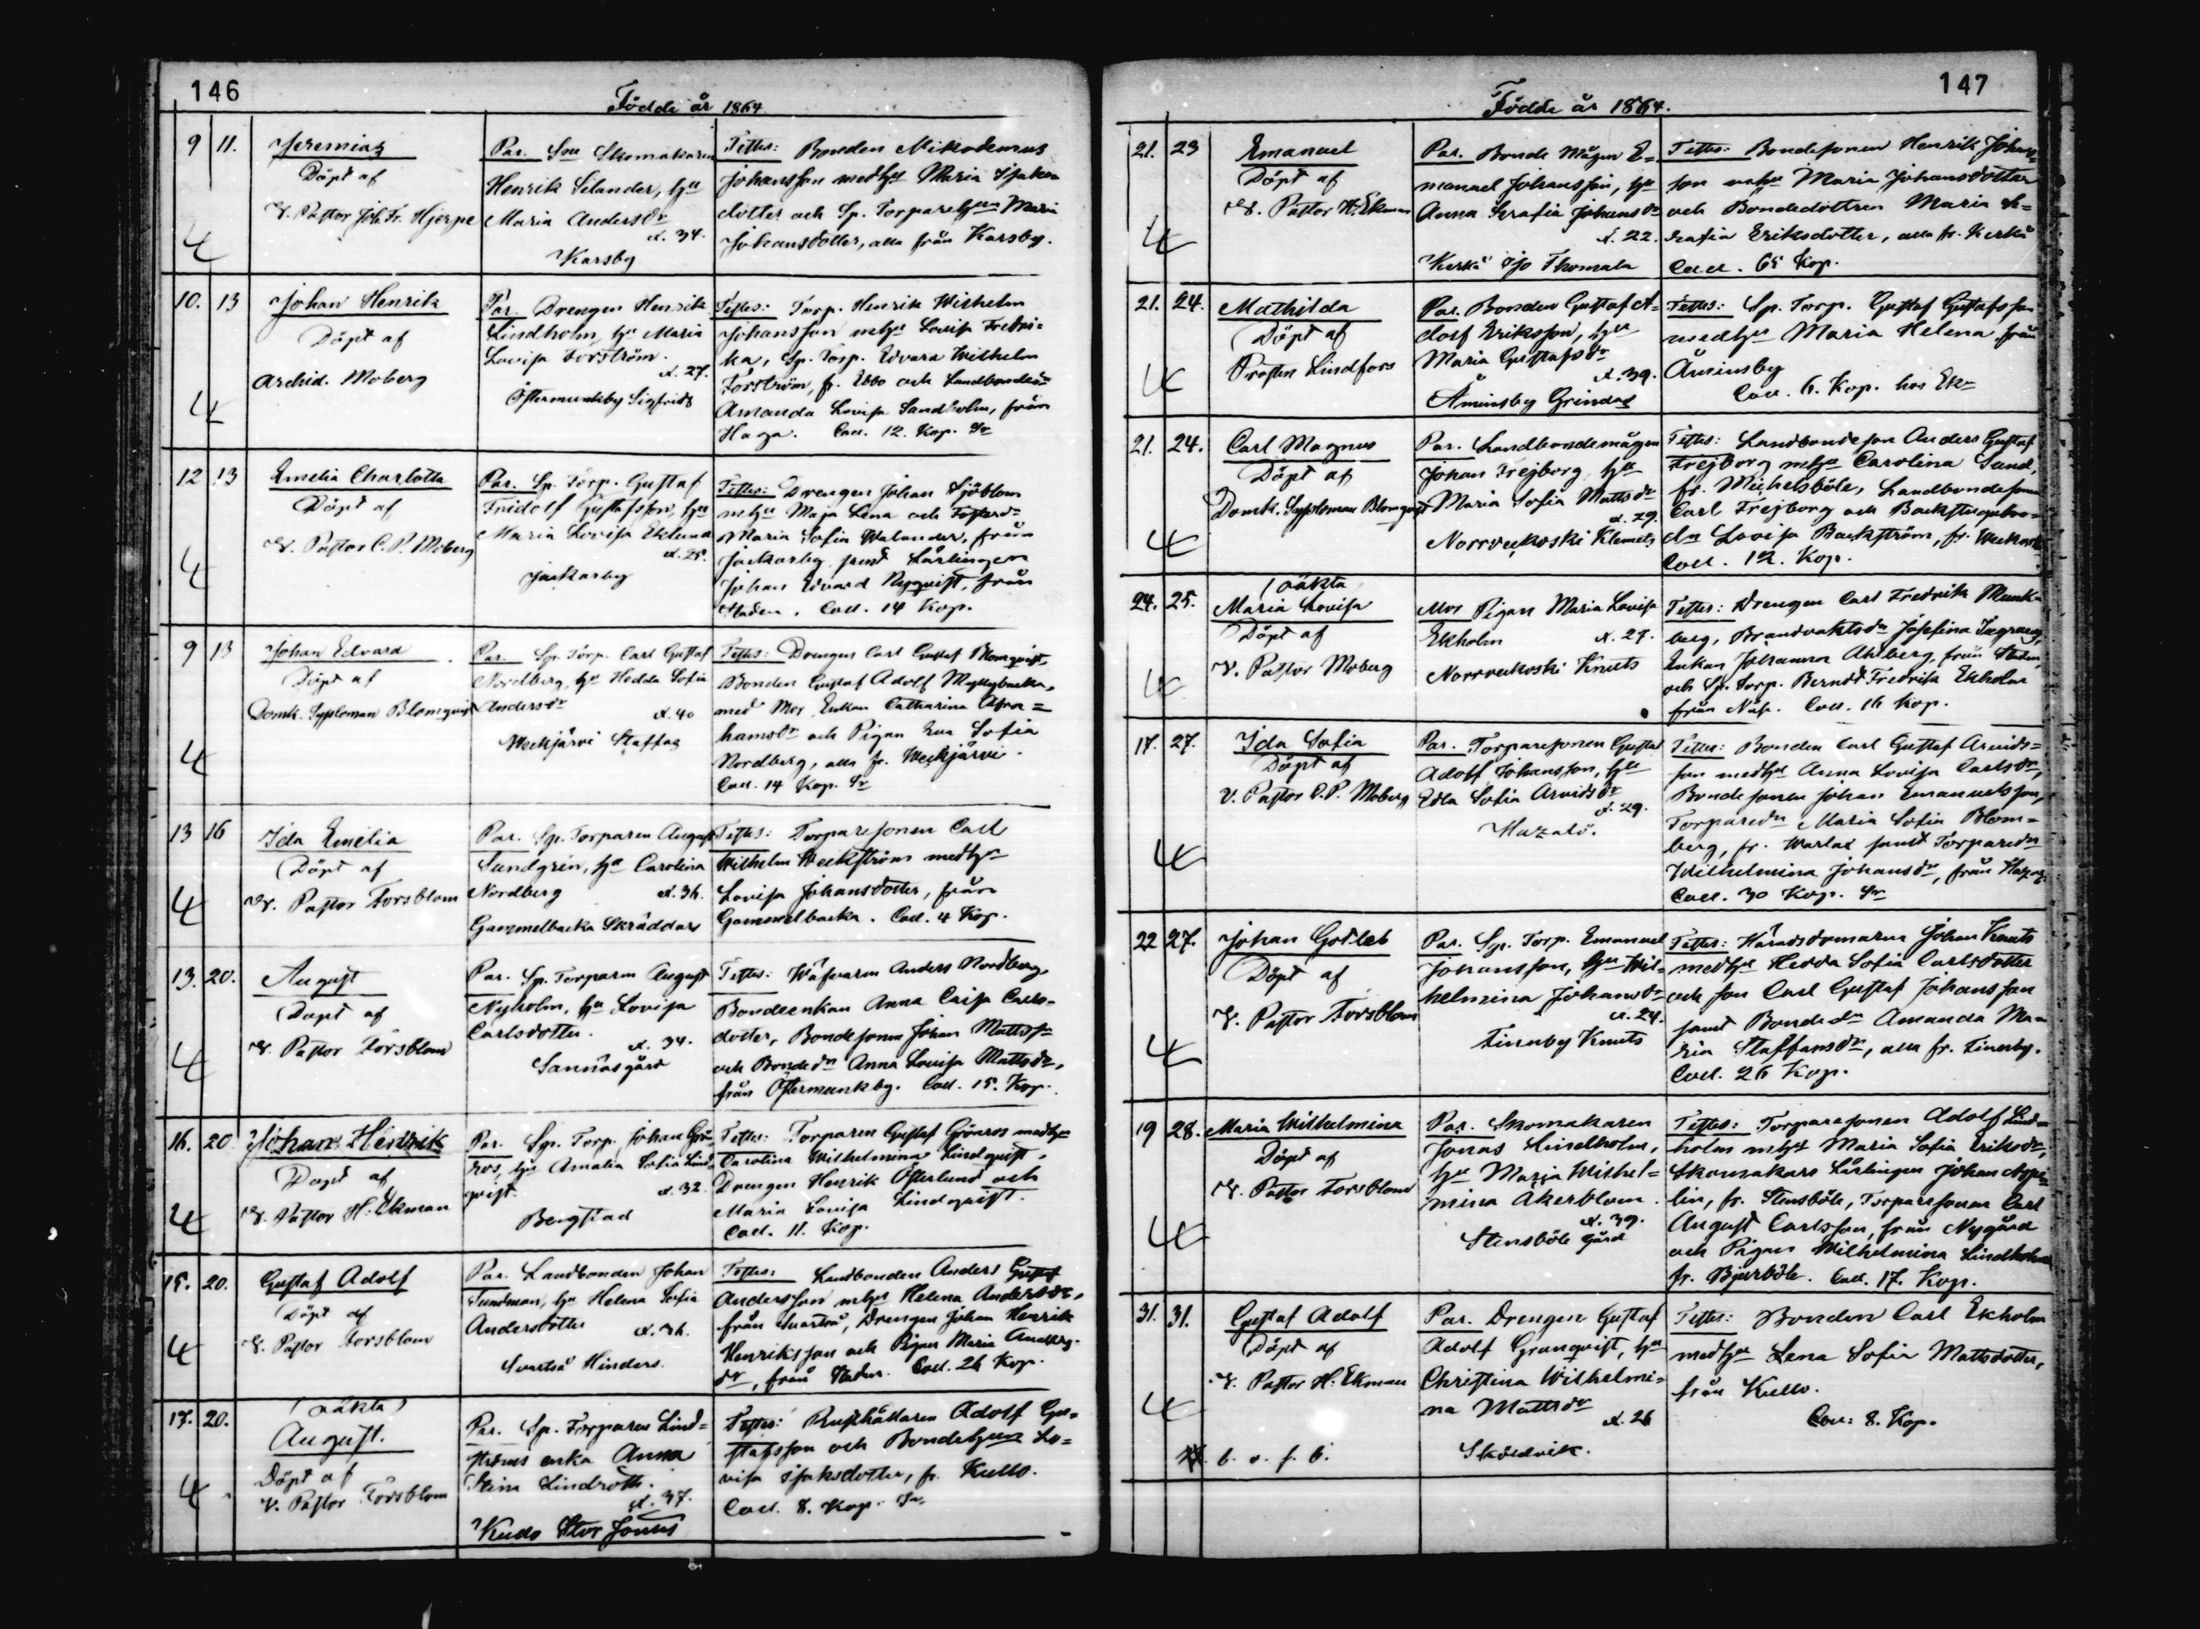 146
Födde år 1864.
9 11. Jeremias
Döpt af
V. Pastor Joh. Fr. Hjerpe
4
Par. Skomakaren
Henrik Selander, hu
Maria Andersdr
å. 34.
Karsby
Testes: Bonden Nikodemus
Johansson med hu Maria Isaks-
dotter och Sp. Torpare Maria
Johansdotter, alla från Karsby.
10. 13 Johan Henrik
Döpt af
Archid. Moberg
4
Par. Drengen Henrik
Lindholm, hu Maria
Lovisa Forström.
å. 27.
Östermunkby Sigfrids
Testes: Torp. Henrik Wilhelm
Johansson m hu Lovisa Fredri=
ka, Sp. Torp. Edvard Wilhelm
Forström, fr. Ebbo och
Amanda Lovisa Sandholm, från
Haga. Coll. 12. Kop. Sr
12 13 Emelia Charlotta
Döpt af
V. Pastor C. P. Moberg
4
Par. Sp. Torp. Gustaf
Fridolf Gustafsson, hu
Maria Lovisa Eklund
å. 25.
Jackarby
Testes: Drengen Johan Sjöblom
m hu Maja Lena och
Maria Sofia Walander, från
Jackarby samt Lärlingen
Johan Edvard Nyqvist, från
Staden. Coll. 14 Kop.
9 13 Johan Edvard
Döpt af
Domk. Sysloman Blomqvist
4
Par. Sp. Torp. Carl Gustaf
Nordberg, hu Hedda Sofia
Andersdr
å. 40
Weckjärvi Staffas
Testes: Drengen Carl Gustaf Blomqvist,
Bonden Gustaf Adolf
med Mor Enkan Catharina Abra=
hamsdr och Pigan Eva Sofia
Nordberg, alla fr. Weckjärvi.
Coll. 14 Kop. Sr
13 16 Ida Emelia
Döpt af
V. Pastor Forsblom
4
Par. Sp. Torparen August
Sundgrén, hu Carolina
Nordberg å. 36.
Gammelbacka Skräddars
Testes: Torparesonen Carl
Wilhelm Weckström med hu
Lovisa Johansdotter, från
Gammelbacka. Coll. 4 Kop.
13. 20. August
Döpt af
V. Pastor Forsblom
4
Par. Sp. Torparen August
Nyholm, hu Lovisa
Carlsdotter.
å. 34.
Sannäsgård
Testes: Wäfvaren Anders Nordberg,
Bondeenkan Anna Caisa Carls-
dotter, Bondesonen Johan Mattss
och Bondedr Anna Lovisa Mattsdr,
från Östermunkby. Coll. 15. Kop.
16. 20 Johan Hendrik
Döpt af
V. Pastor H. Ekman
4
Par. Sp. Torp. Johan Grön
roos, hu Amalia Sofia Lind
qvist. å. 32.
Bergstad
Testes: Torparen Gustaf Grönroos med hu
Carolina Wilhelmina Lindqvist,
Drengen Henrik Österlund och
Maria Lovisa Lindqvist.
Coll. 11. Kop.
15. 20. Gustaf Adolf
Döpt af
V. Pastor Forsblom
4
Par. Landbonden Johan
Sundman, hu Helena Sofia
Andersdotter å. 36.
Svartså Hinders.
Testes: Landbonden Anders Gustaf
Andersson m hu Helena Andersdr,
från Svartså, Drengen Johan Henrik
Henriksson och Pigan Maria
dr, från Staden. Coll. 26 Kop.
17. 20. (oäkta)
August.
Döpt af
V. Pastor Forsblom
4
Par. Sp. Torparen Lind=
ströms enka Anna
Stina Lindroth.
å. 37.
Kullo Stor Jonas
Testes: Rusthållaren Adolf Gu=
stafsson och Bonde Lo=
visa Isaksdotter, fr. Kullo.
Coll. 8. Kop. Sr
147
Födde år 1864.
21. 23 Emanuel
Döpt af
V. Pastor H. Ekman
4
Par. Bonde Mågen E=
manuel Johansson, hu
Anna Serafia Johansdr
å. 22.
Kerkå Thomala
Testes: Bondesonen Henrik Johans=
son m hu Maria Johansdotter
och Bondedottren Maria Se=
rafia Eriksdotter, alla fr. Kerkå
Coll. 65 Kop.
21. 24. Mathilda
Döpt af
Prosten Lindfors
4
Par. Bonden Gustaf A=
dolf Eriksson, hu
Maria Gustafsdr
å. 39.
Åminsby Grindas
Testes: Sp. Torp. Gustaf Gustafsson
med hu Maria Helena från
Åminsby
Coll. 6. Kop. hos
21. 24. Carl Magnus
Döpt af
Domk. Sysloman Blomqvist
4
Par. Landbondemågen
Johan Frejborg hu
Maria Sofia Mattsdr
å. 29.
Norrveckoski Klemets
Testes: Landbondeson Anders Gustaf
Frejborg m hu Carolina Sund,
fr. Mickelsböle, Landbondesonen
Carl Frejborg och
Lovisa Backström, fr. Weckoski
Coll. 12. Kop.
24. 25. (oäkta
Maria Lovisa
Döpt af
V. Pastor Moberg
4
Mor Pigan Maria Lovisa
Ekholm å. 27.
Norrveckoski Knuts
Testes: Drengen Carl Fredrik Munk-
berg, Brandvaktsdr Josefina
Enkan Johanna Ahlberg från Staden,
och Sp. Torp. Berndt Fredrik Ekholm
från Näse. Coll. 16 Kop.
17. 27. Ida Sofia
Döpt af
V. Pastor C. P. Moberg
4
Par. Torparesonen Gustaf
Adolf Johansson, hu
Edla Sofia Arvidsdr
å. 29.
Testes: Bonden Carl Gustaf Arvids=
son med hu Anna Lovisa Carlsdr,
Bondesonen Johan Emanuelsson,
Torparedr Maria Sofia Blom=
berg, fr. Warlax samt Torparedr
Wilhelmina Johansdr, från
Coll. 30 Kop. Sr
22 27. Johan Gotlieb
Döpt af
V. Pastor Forsblom
4
Par. Sp. Torp. Emanuel
Johansson, hu Wil=
helmina Johansdr
å. 24.
Finnby Knuts
Testes: Häradsdomaren Johan Knuts
med hu Hedda Sofia Carlsdotter
och son Carl Gustaf Johansson
samt Bondedr Amanda Ma=
ria Staffansdr, alla fr. Finnby.
Coll. 26 Kop.
19 28. Maria Wilhelmina
Döpt af
V. Pastor Forsblom
4
Par. Skomakaren
Jonas Lindholm,
hu Maria Wilhel=
mina Åkerblom.
å. 39.
Stensböle Gård
Testes: Torparesonen Adolf Lind=
holm m hu Maria Sofia Eriksdr,
Skomakare Lärlingen Johan
lin, fr. Stensböle, Torparesonen Carl
August Carlsson, från Nygård
och Pigan Wilhelmina Lindholm
fr. Bjurböle. Coll. 17. Kop.
31. 31. Gustaf Adolf
Döpt af
V. Pastor H. Ekman
4
b. o. f. b.
Par. Drengen Gustaf
Adolf Granqvist, hu
Christina Wilhelmi=
na Mattsdr
å. 26
Sköldvik.
Testes: Bonden Carl Ekholm
med hu Lena Sofia Mattsdotter,
från Kullo.
Coll: 8. Kop.